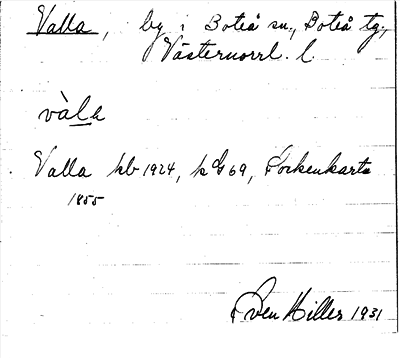 Valla, by i Boteå sn., Boteå tg.,
Västernorrl. l.
vàla
Valla hb 1924, k 69, Sockenkarta
1855
Sven Hiller 1931